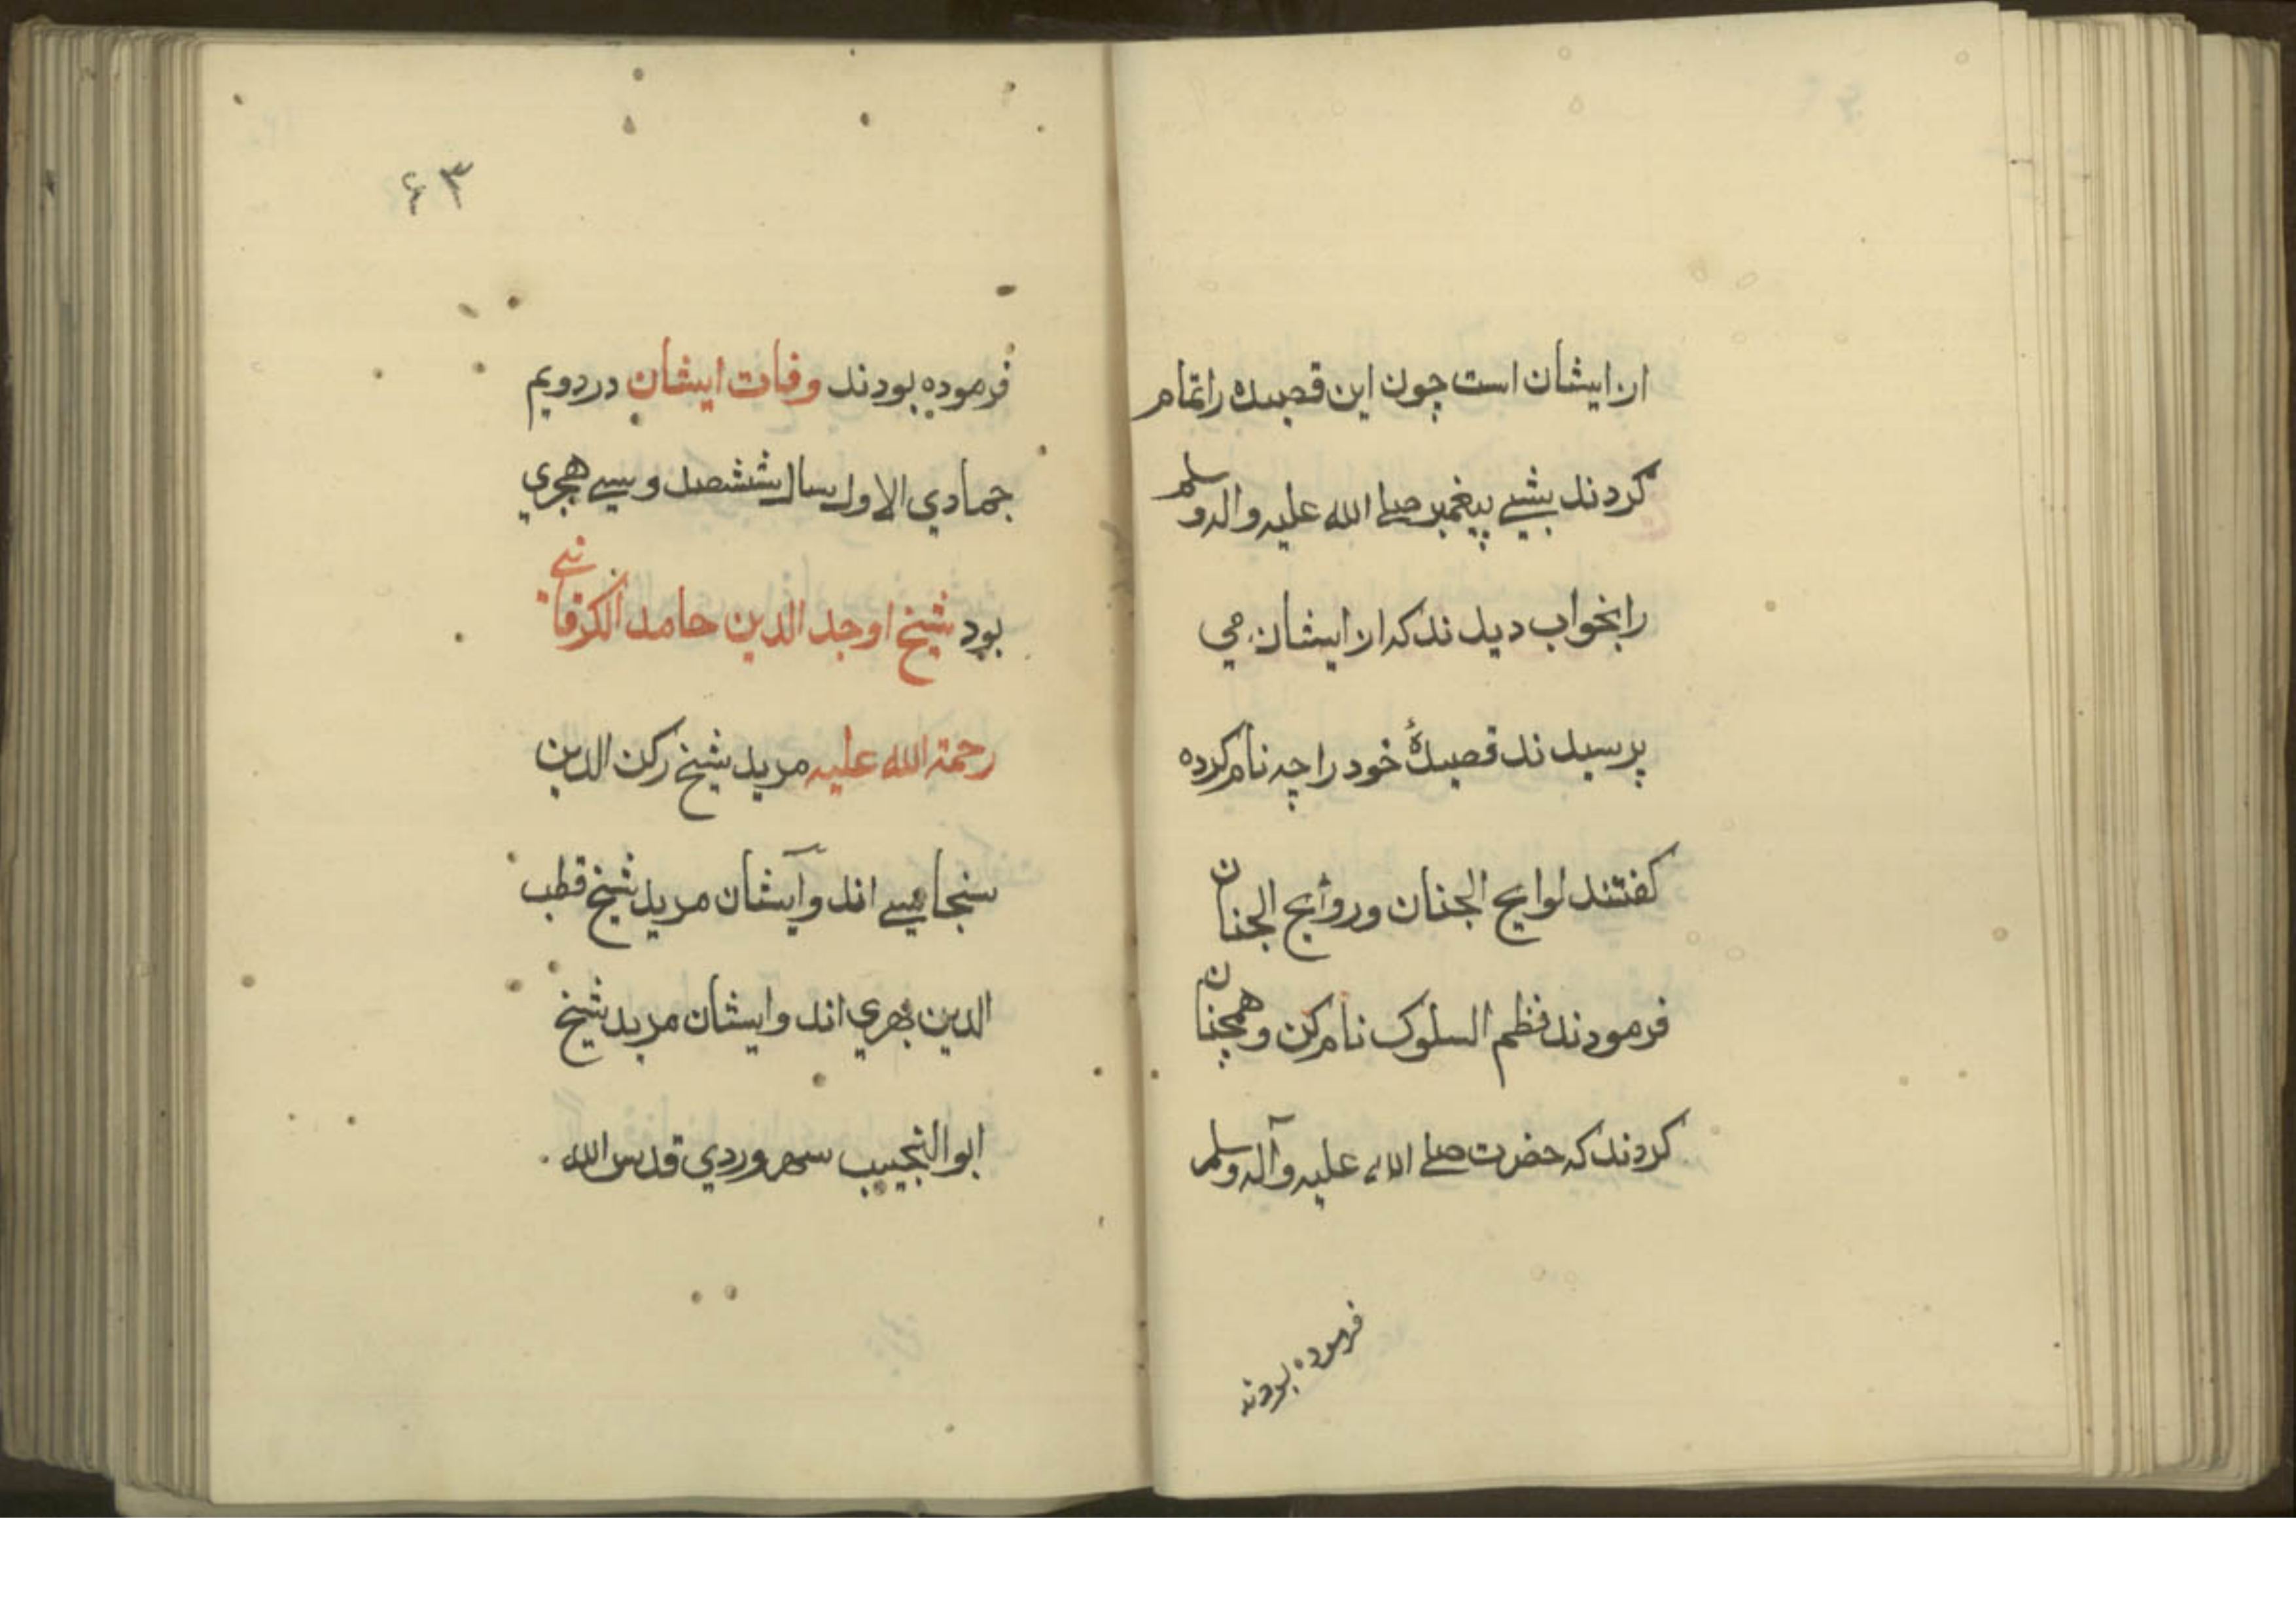 از ایشان است چون این قصیده را تمام
کردند بشبے پیغمبر صلے الله علیه واله وسلم
را بخواب دیدند که از ایشان می
پرسیدند قصیدهٔ خود را چه نام کرده
کفتند لوایح الجنان وروائح الجنان
فرمودند نظم السلوک نام کن وهمچنان
کردند که حضرت صلے الله علیه وآله وسلم
فرموده بودند
۶۳
فرموده بودند وفات ایشان در دویم
جمادي الاول سال ششصد و سے هجري
بود شیخ اوحد الدین حامد الکرمانے
رحمة الله علیه مرید شیخ رکن الدین
سنجاسے اند وایشان مرید شیخ قطب
الدین بهري اند وایشان مرید شیخ
ابو النجیب سهروردي قدس الله